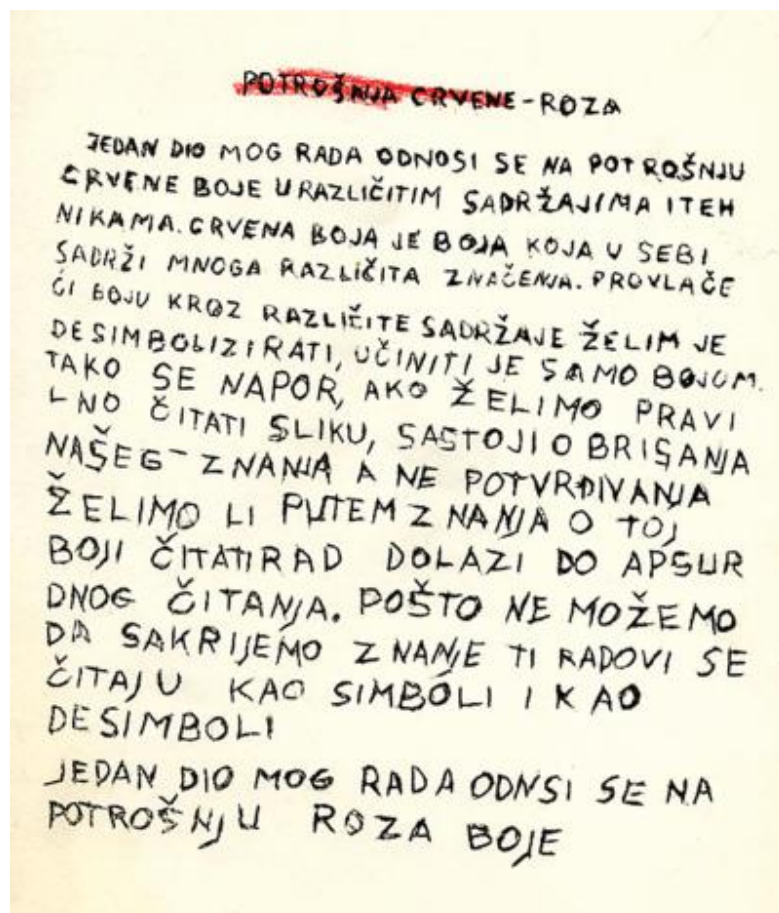 POTROŠNJA CRVENE-ROZA
JEDAN DIO MOG RADA ODNOSI SE NA POTROŠNJU
CRVENE BOJE U RAZLIČITIM SADRŽAJIMA I TEH
NIKAMA. CRVENA BOJA JE BOJA KOJA U SEBI
SADRŽI MNOGA RAZLIČITA ZNAČENJA. PROVLAČE
ĆI BOJU KROZ RAZLIČITE SADRŽAJE ŽELIM JE
DESIMBOLIZIRATI, UČINITI JE SAMO BOJOM.
TAKO SE NAPOR, AKO ŽELIMO PRAVI
LNO ČITATI SLIKU, SASTOJI O BRISANJA
NAŠEG - ZNANJA A NE POTVRĐIVANJA
ŽELIMO LI PUTEM ZNANJA O TOJ
BOJI ČITATI RAD DOLAZI DO APSUR
DNOG ČITANJA. POŠTO NE MOŽEMO
DA SAKRIJEMO ZNANJE TI RADOVI SE
ČITAJU KAO SIMBOLI I KAO
DESIMBOLI
JEDAN DIO MOG RADA ODNSI SE NA
POTROŠNJU ROZA BOJE